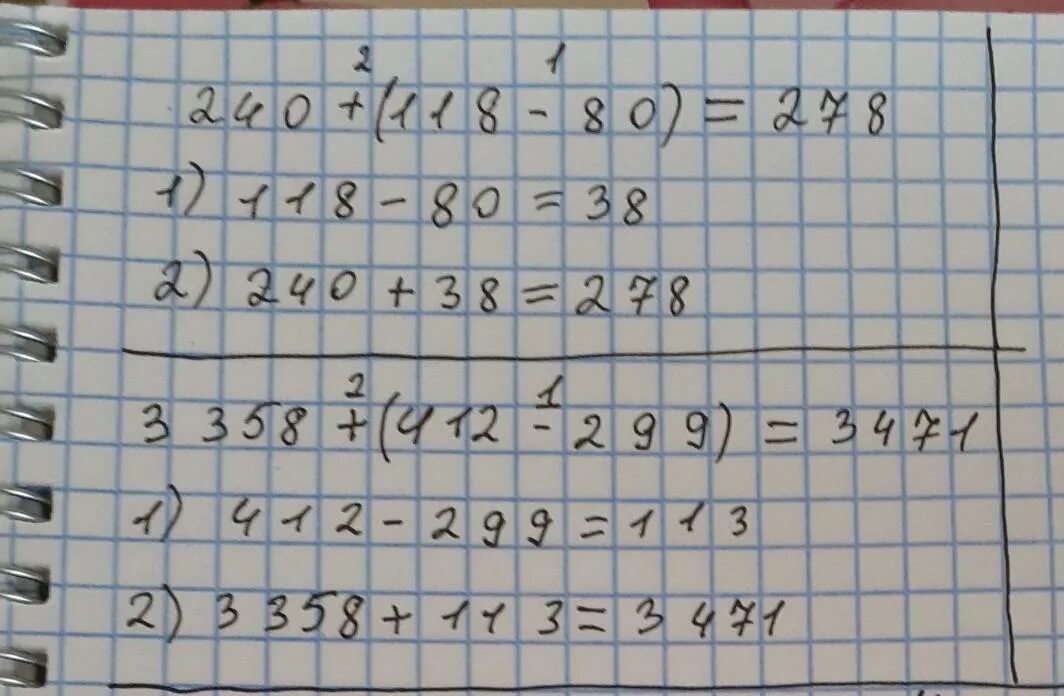 2 1
240 + (118 - 80) = 278
1) 118 - 80 = 38
2) 240 + 38 = 278
2 1
3 358 + (412 - 299) = 3471
1) 412 - 299 = 113
2) 3 358 + 113 = 3 471